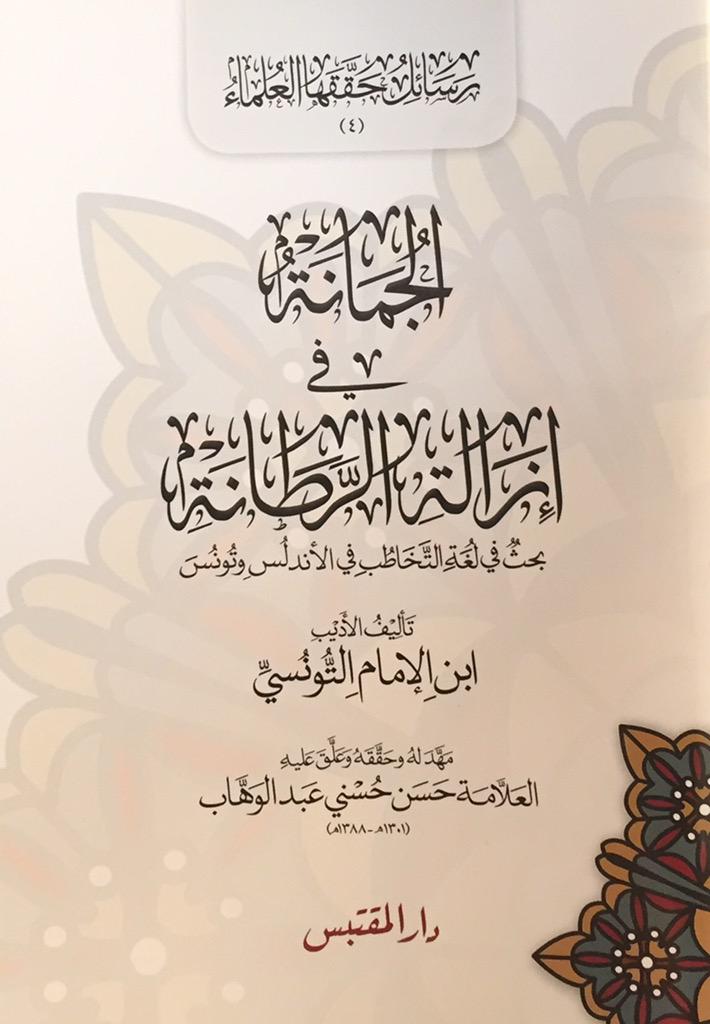 رَسَائِلُ حَقَّقَهَا العُلَمَاءُ
(٤)
الجُمَانَةُ
في
إِزَالَةِ الرَّطَانَةِ
بحثٌ في لُغَةِ التَّخَاطُبِ في الأندلُسِ وتُونُسَ
تَأليفُ الأَدِيْبِ
ابنِ الإِمَامِ التُّونُسيِّ
مَهَّدَ لهُ وحَقَّقَهُ وعَلَّقَ عَلَيهِ
العَلاَّمَة حَسَن حُسْني عَبد الوَهَّاب
(١٣٠١هـ - ١٣٨٨هـ)
دار المقتبس